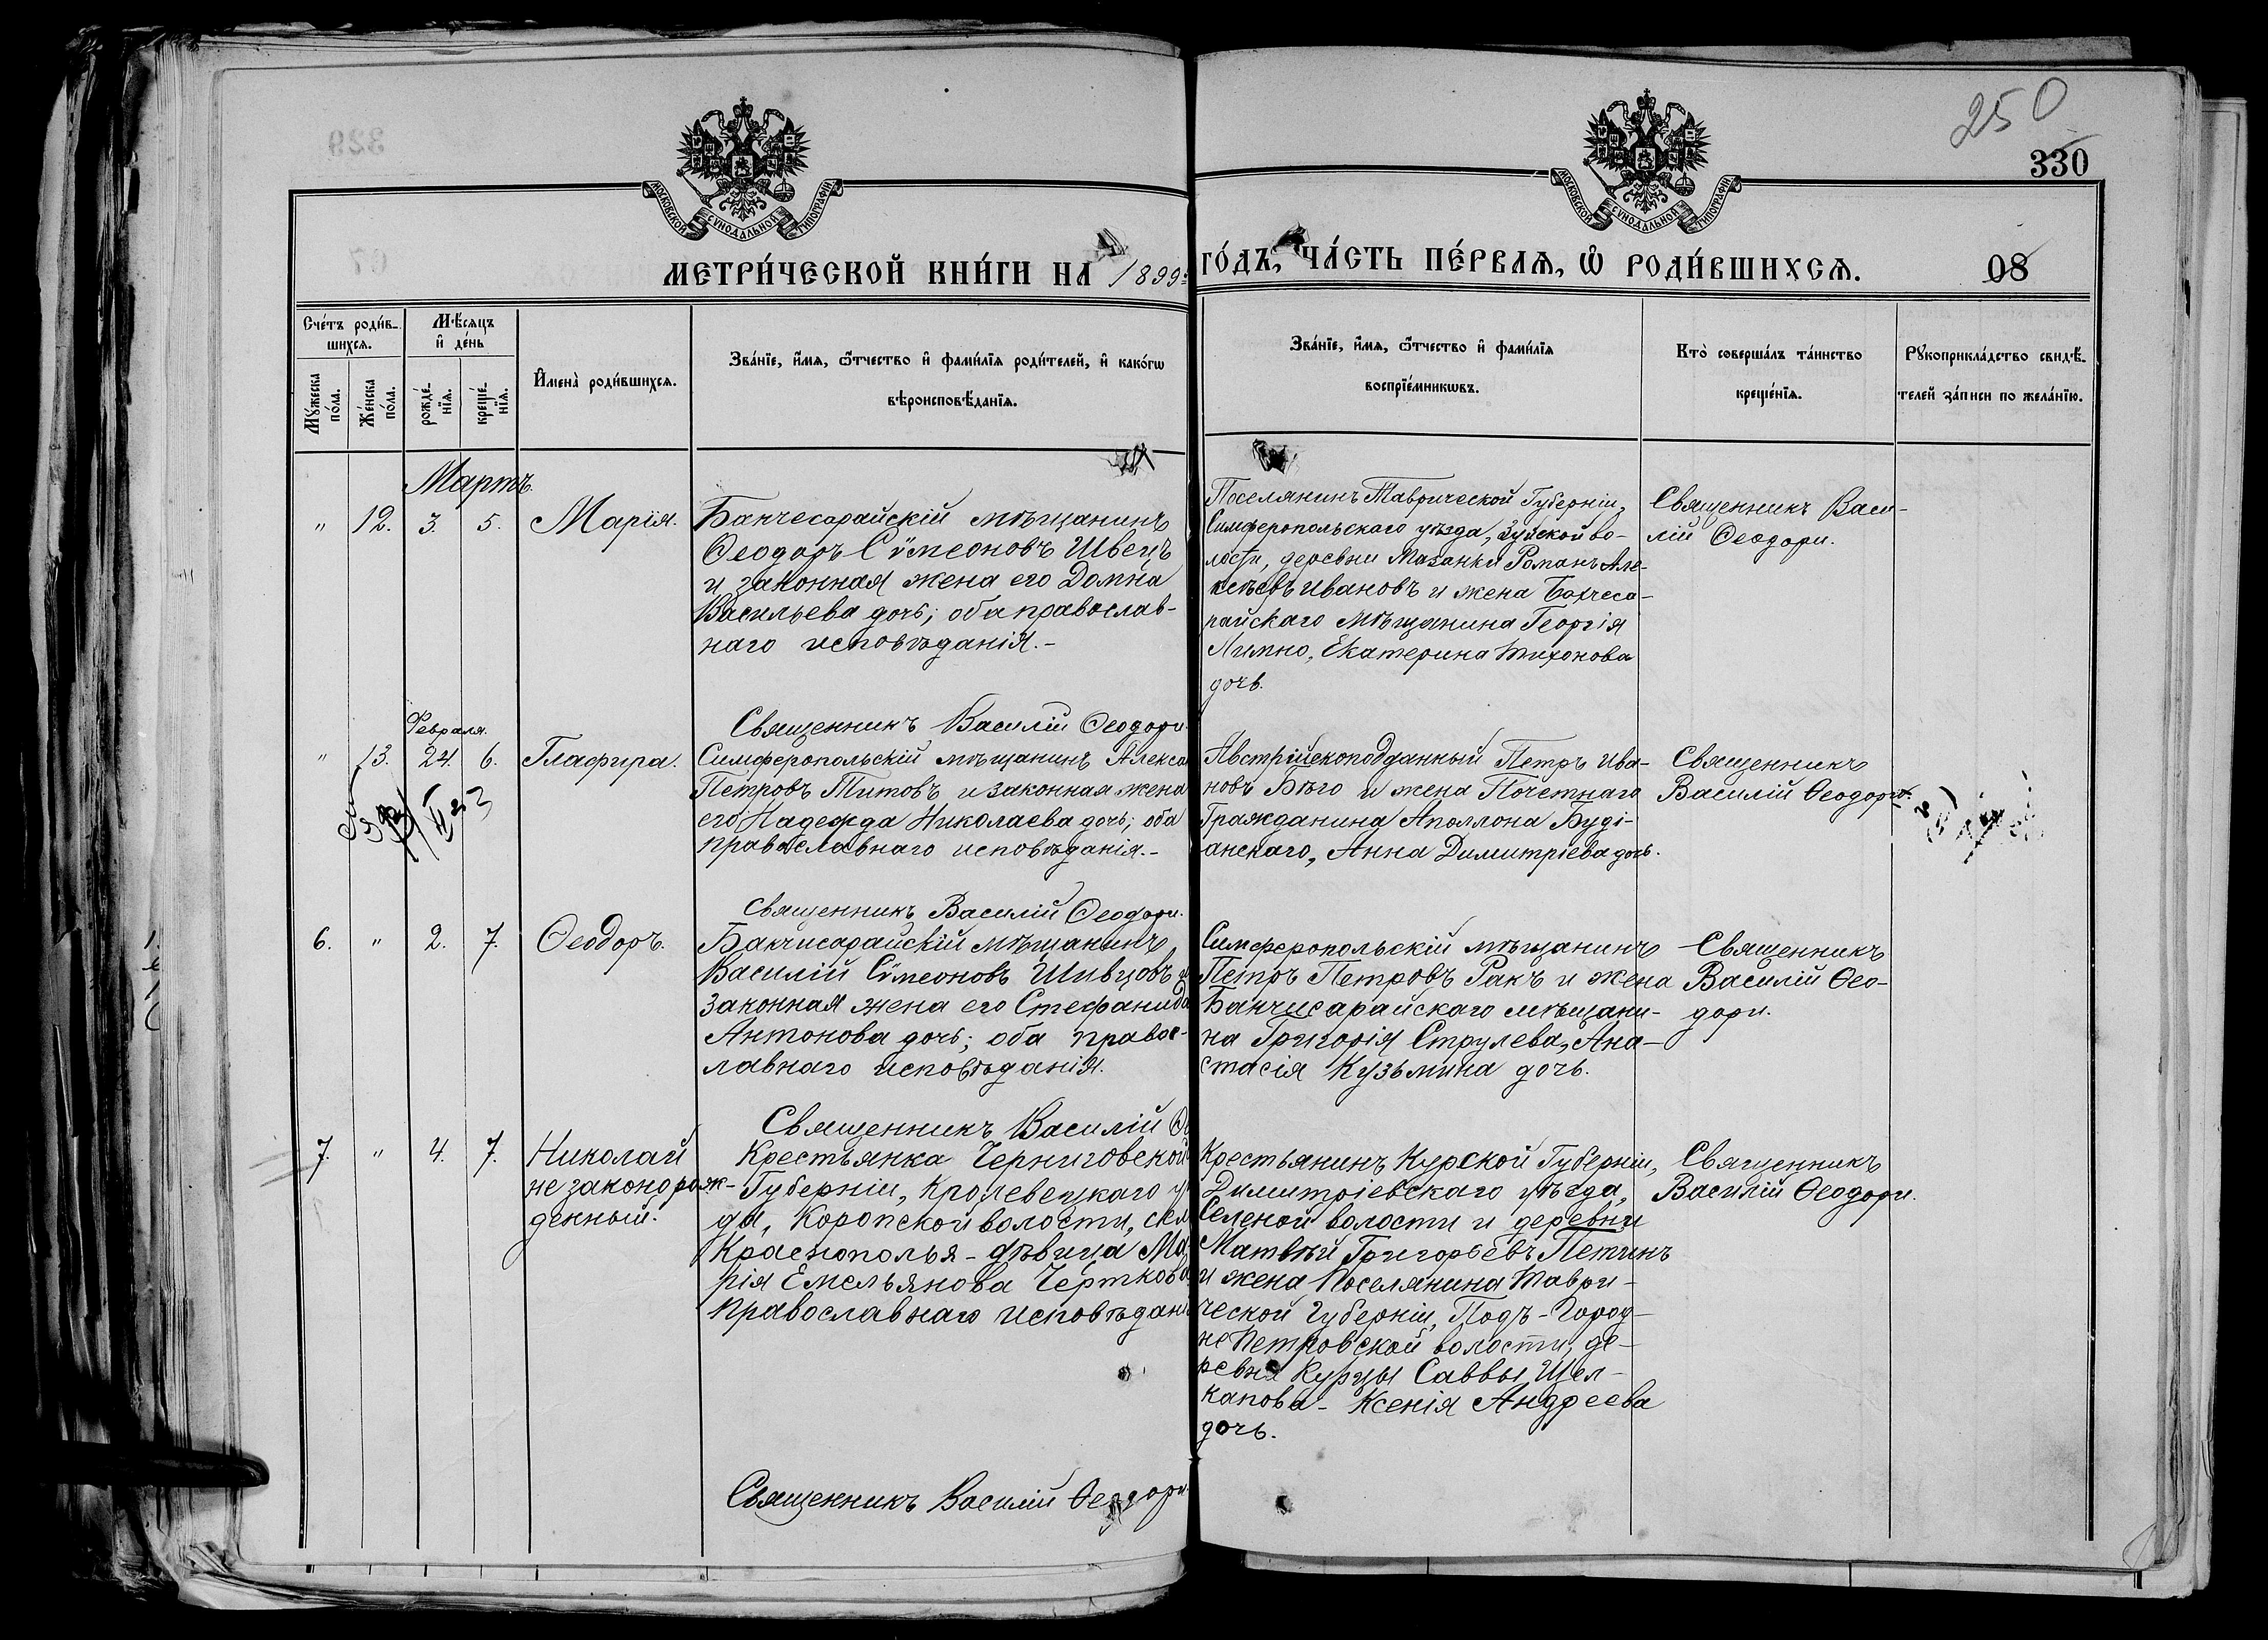 250
330
МОСКОВСКОЙ СУНОДАЛЬНОЙ ТИПОГРАФІИ
МОСКОВСКОЙ СУНОДАЛЬНОЙ ТИПОГРАФІИ
МЕТРИ́ЧЕСКОЙ КНИ́ГИ НА 1899 ГО́ДЪ, ЧА́СТЬ ПЕ́РВАѦ, Ѡ РОДИ́ВШИХСѦ.
08
Сче́тъ роди́в-
шихсѧ.
Мꙋ́жеска по́ла.
Же́нска по́ла.
Мѣ́сѧцъ и де́нь
рожде́нїѧ.
креще́нїѧ.
Имена̀ роди́вшихсѧ.
Зва́нїе, и́мѧ, ѻ҆́тчество и фами́лїѧ роди́телей, и како́гѡ
вѣроисповѣ́данїѧ.
Зва́нїе, и́мѧ, ѻ҆́тчество и фами́лїѧ
воспрїе́мникѡвъ.
Кто̀ соверша́лъ та́инство
креще́нїѧ.
Рꙋкоприкла́дство свидѣ́-
телей за́писи по жела́нїю.
Мартъ.
" 12. 3. 5. Марія.
Бахчесарайскій мѣщанинъ
Ѳеодоръ Сѵмеоновъ Швецъ
и законная жена его Домна
Васильева дочь; оба православ-
наго исповѣданія.-
Поселянинъ Таврической Губерніи,
Симферопольскаго уѣзда, Зуйской во-
лости, деревни Мазанки Романъ Але-
ксѣевъ Ивановъ и жена Бахчеса-
райскаго мѣщанина Георгія
Лимно, Екатерина Тихонова
дочь.
Священникъ Васи-
лій Ѳеодори.
Священникъ Василій Ѳеодори.
Февраля.
" 13. 24. 6. Глафира.
Симферопольскій мѣщанинъ Алекса
Петровъ Титовъ и законная жена
его Надежда Николаева дочь; оба
православнаго исповѣданія.-
Австрійскоподданный Петръ Ива-
новъ Бѣго и жена Почетнаго
Гражданина Аполлона Буді-
анскаго, Анна Димитріева дочь.
Священникъ
Василій Ѳеодори.
Священникъ Василій Ѳеодори.
6. " 2. 7. Ѳеодоръ.
Бахчисарайскій мѣщанинъ
Василій Сѵмеоновъ Шивцовъ и
законная жена его Стефанида
Антонова дочь; оба правос-
лавнаго исповѣданія.
Симферопольскій мѣщанинъ
Петръ Петровъ Ракъ и жена
Бахчисарайскаго мѣщани-
на Григорія Струлева, Ана-
стасія Кузьмина дочь.
Священникъ
Василій Ѳео-
дори.
Священникъ Василій Ѳе
7. " 4. 7. Николай
не законорож-
денный.
Крестьянка Черниговской
Губерніи, Кролевецкаго уѣ
да, Коропской волости, сел
Краснополья - дѣвица Ма
рія Емельянова Черткова
православнаго исповѣдані
Крестьянинъ Курской Губерніи,
Димитріевскаго уѣзда,
Селеной волости и деревни
Матвѣй Григорьевъ Петинъ
и жена Поселянина Таври-
ческой Губерніи, Подъ-Город-
не Петровской волости, де-
ревня Курцы Саввы Щел-
капова - Ксенія Андреева
дочь.
Священникъ
Василій Ѳеодори.
Священникъ Василій Ѳеодори